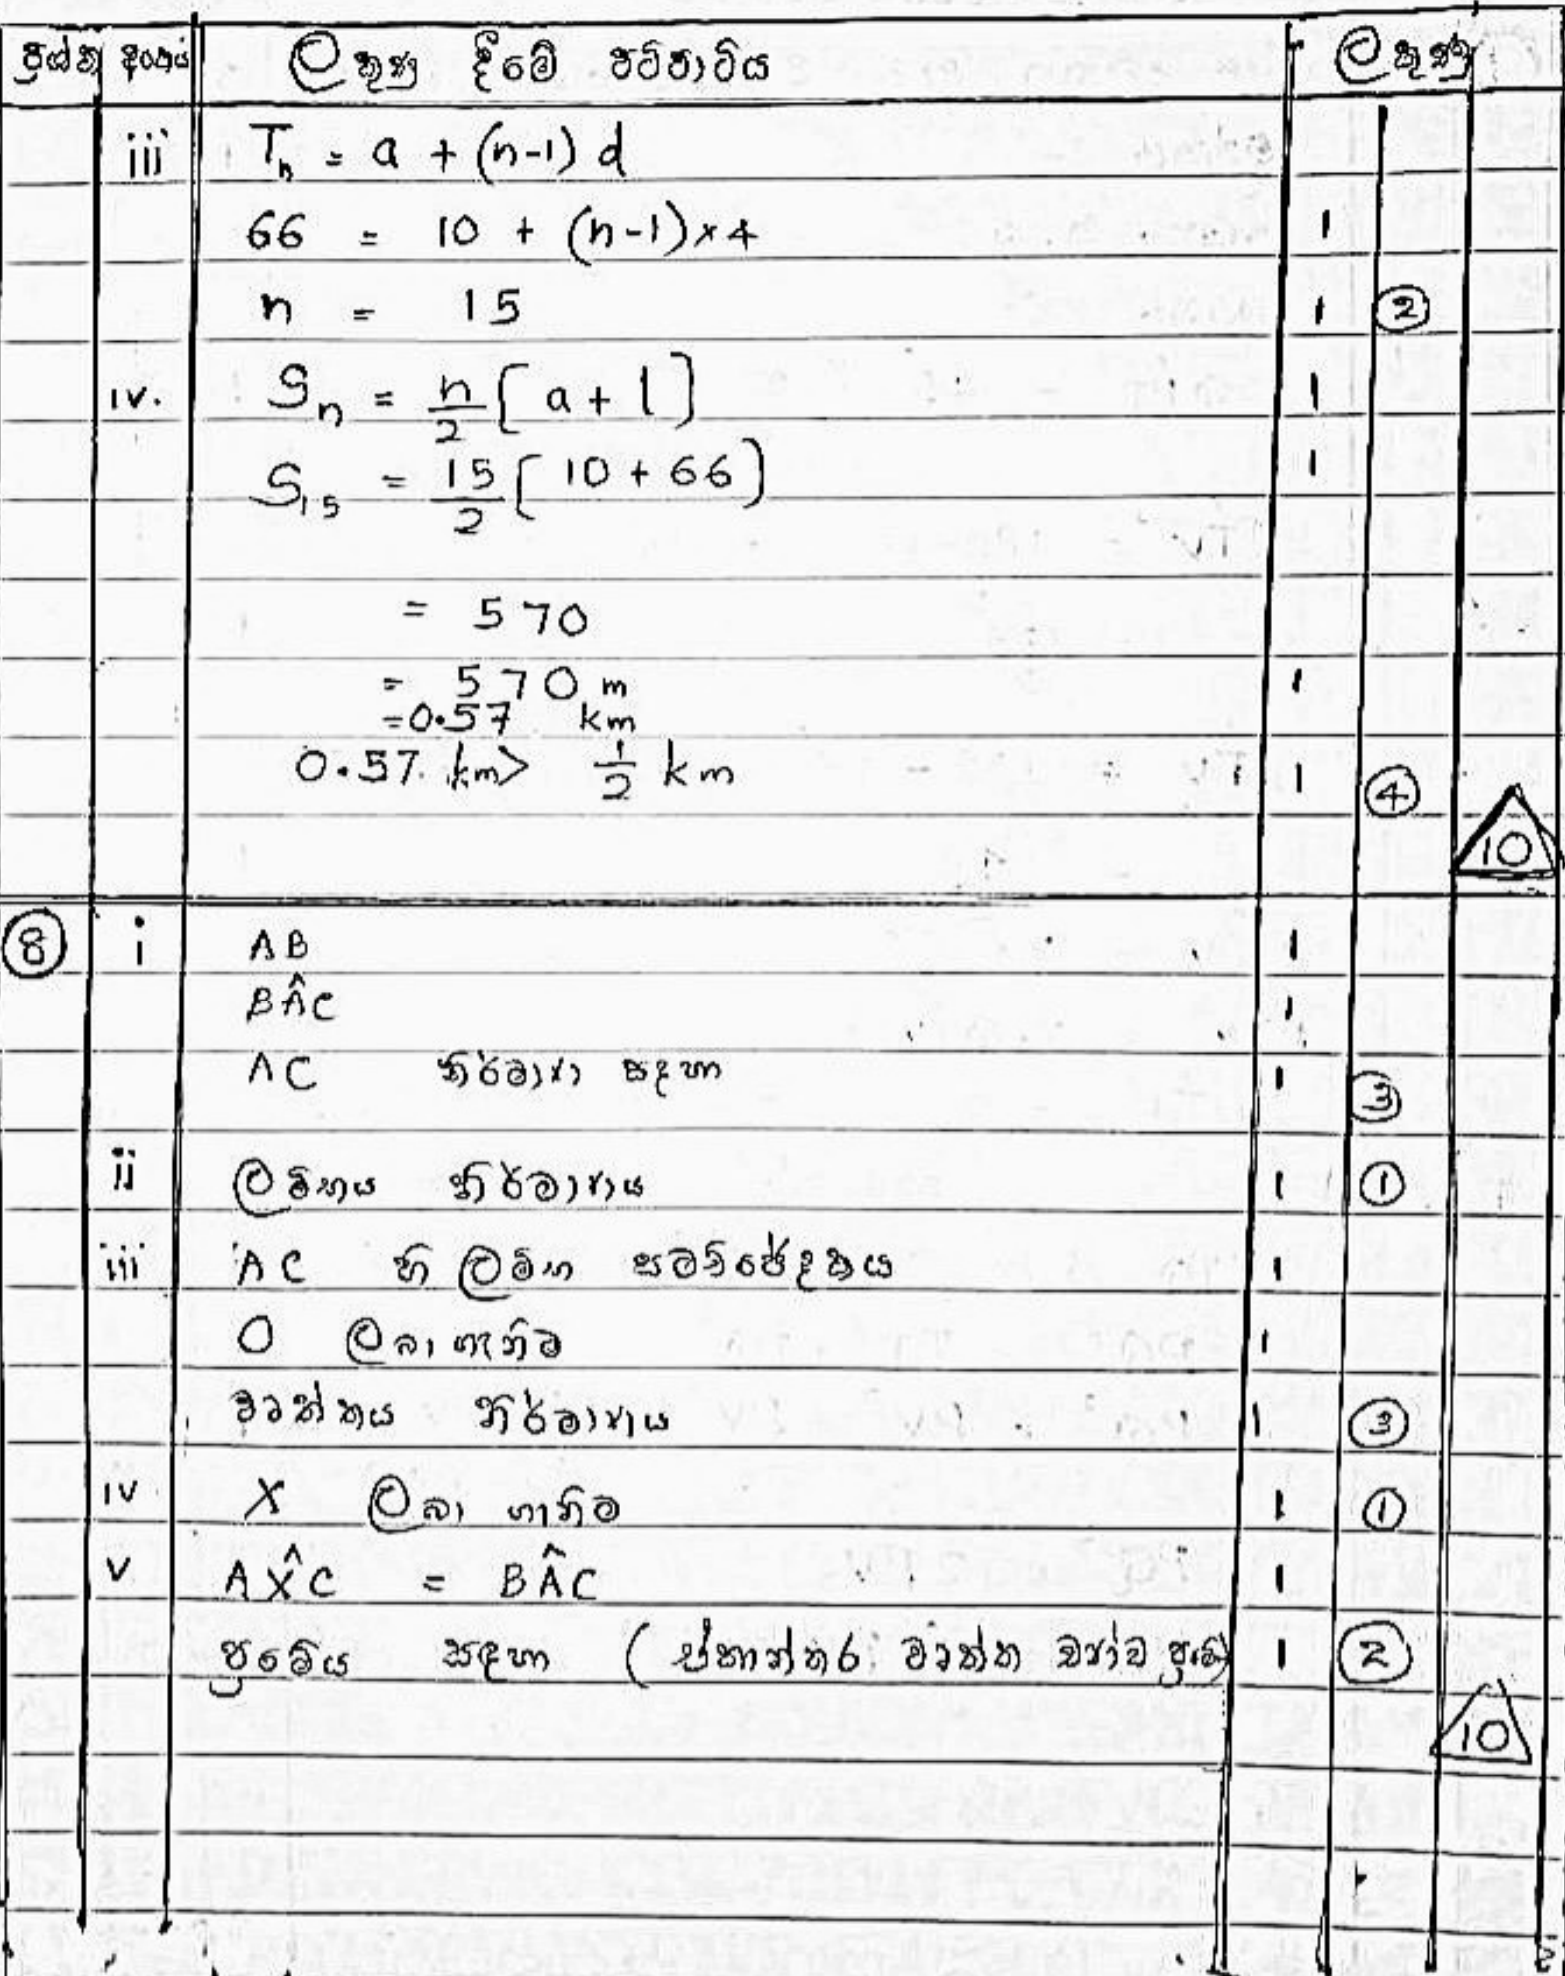 ප්‍රශ්න අංකය ලකුණු දීමේ පටිපාටිය ලකුණු
iii Tn = a + (n-1) d
66 = 10 + (n-1)×4 1
n = 15 1 ②
iv. Sn = n/2 [ a + l ] 1
S15 = 15/2 [ 10 + 66 ] 1
= 570
= 570 m 1
=0.57 km
0.57 km > 1/2 km 1 ④
10
⑧ i AB 1
BÂC 1
AC නිර්මාණ සඳහා 1 ③
ii ලම්භය නිර්මාණය 1 ①
iii AC හි ලම්භ සමච්ඡේදකය 1
O ලබා ගැනීම 1
වෘත්තය නිර්මාණය 1 ③
iv X ලබා ගැනීම 1 ①
v AX̂C = BÂC 1
ප්‍රමේය සඳහා ( ඒකාන්තර වෘත්ත ඛණ්ඩ ප්‍රමේ) 1 ②
10